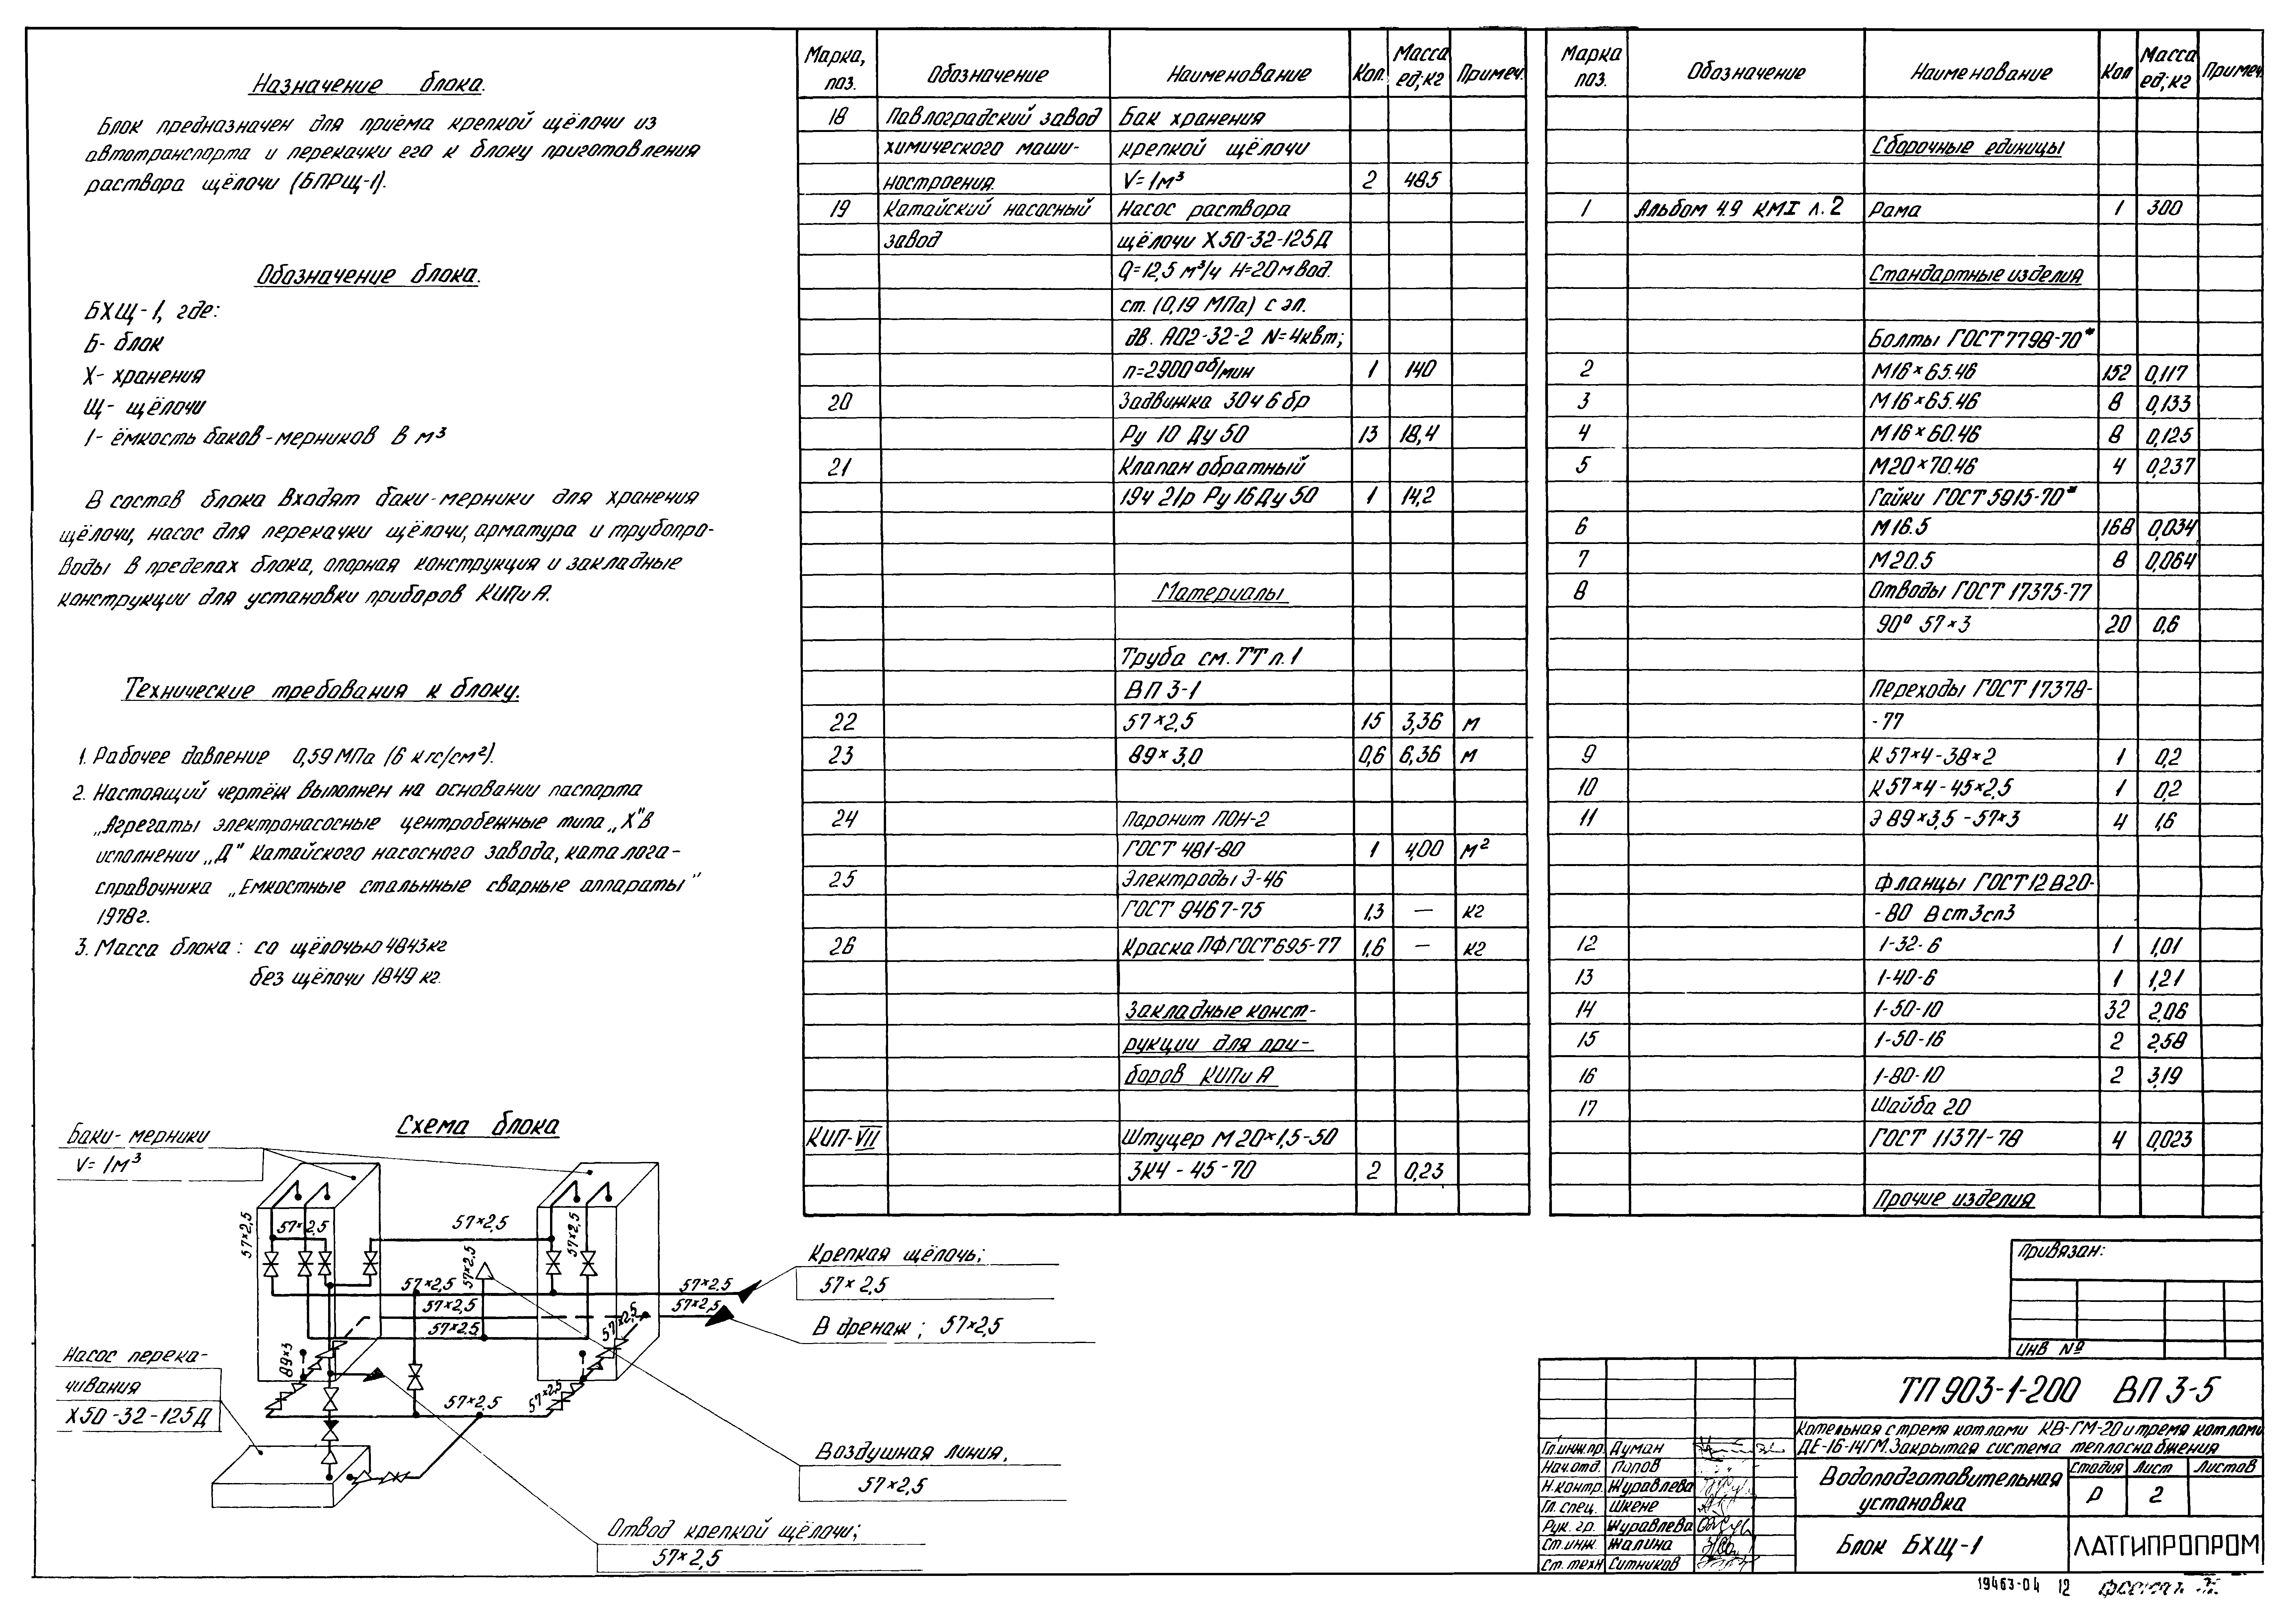 Назначение блока.
Блок предназначен для приёма крепкой щёлочи из
автотранспорта и перекачки его к блоку приготовления
раствора щёлочи (БПРЩ-1).
Обозначение блока.
БХЩ-1, где:
Б- блок
Х- хранения
Щ- щёлочи
1- ёмкость баков-мерников в м³
В состав блока входят баки-мерники для хранения
щёлочи, насос для перекачки щёлочи, арматура и трубопро-
воды в пределах блока, опорная конструкция и закладные
конструкции для установки приборов КИПиА.
Технические требования к блоку.
1. Рабочее давление 0,59 МПа (6 кгс/см²).
2. Настоящий чертёж выполнен на основании паспорта
„Агрегаты электронасосные центробежные типа „Х" в
исполнении „Д" Катайского насосного завода, каталога-
справочника „Емкостные стальнные сварные аппараты"
1978г.
3. Масса блока: со щёлочью 4843кг
без щёлочи 1849 кг.
Схема блока
Баки-мерники
V=1м³
57×2,5
57×2,5
57×2,5
57×2,5
57×2,5
57×2,5
57×2,5
57×2,5
57×2,5
57×2,5
57×2,5
57×2,5
89×3
57×2,5
57×2,5
Крепкая щёлочь;
57×2,5
В дренаж; 57×2,5
Насос перека-
чивания
Х50-32-125Д
Воздушная линия,
57×2,5
Отвод крепкой щёлочи;
57×2,5
Марка, поз. Обозначение Наименование Кол. Масса ед;кг Примеч.
18 Павлоградский завод Бак хранения
химического маши- крепкой щёлочи
ностроения. V=1м³ 2 485
19 Катайский насосный Насос раствора
завод щёлочи Х50-32-125Д
Q=12,5 м³/ч Н=20м вод.
ст. (0,19 МПа) с эл.
дв. АО2-32-2 N=4квт;
п=2900 об/мин 1 140
20 Задвижка 30ч6бр
Ру 10 Ду 50 13 18,4
21 Клапан обратный
19ч 21р Ру 16 Ду 50 1 14,2
Материалы
Труба см. ТТ л.1
ВП 3-1
22 57×2,5 15 3,36 м
23 89×3,0 0,6 6,36 м
24 Паронит ПОН-2
ГОСТ 481-80 1 4,00 м²
25 Электроды Э-46
ГОСТ 9467-75 1,3 — кг
26 Краска ПФ ГОСТ 695-77 1,6 — кг
Закладные конст-
рукции для при-
боров КИПиА
КИП-VII Штуцер М20×1,5-50
ЗК4-45-70 2 0,23
Марка поз. Обозначение Наименование Кол Масса ед;кг Примеч.
Сборочные единицы
1 Альбом 4.9 КМI л.2 Рама 1 300
Стандартные изделия
Болты ГОСТ 7798-70*
2 М16×65.46 152 0,117
3 М16×65.46 8 0,133
4 М16×60.46 8 0,125
5 М20×70.46 4 0,237
Гайки ГОСТ 5915-70*
6 М16.5 168 0,034
7 М20.5 8 0,064
8 Отводы ГОСТ 17375-77
90° 57×3 20 0,6
Переходы ГОСТ 17378-
-77
9 К 57×4-38×2 1 0,2
10 К 57×4-45×2,5 1 0,2
11 Э 89×3,5-57×3 4 1,6
Фланцы ГОСТ 12820-
-80 Вст3сп3
12 1-32-6 1 1,01
13 1-40-6 1 1,21
14 1-50-10 32 2,06
15 1-50-16 2 2,58
16 1-80-10 2 3,19
17 Шайба 20
ГОСТ 11371-78 4 0,023
Прочие изделия
Привязан:
Инв №
ТП 903-1-200 ВП 3-5
Котельная с тремя котлами КВ-ГМ-20 и тремя котлами
ДЕ-16-14ГМ. Закрытая система теплоснабжения
Гл.инж.пр. Думан
Нач.отд. Попов
Н.контр. Журавлева
Гл. спец. Шкене
Рук. гр. Журавлева
Ст.инж. Жалина
Ст.техн Ситников
Водоподготовительная
установка
Стадия Лист Листов
Р 2
Блок БХЩ-1
ЛАТГИПРОПРОМ
19463-04 12